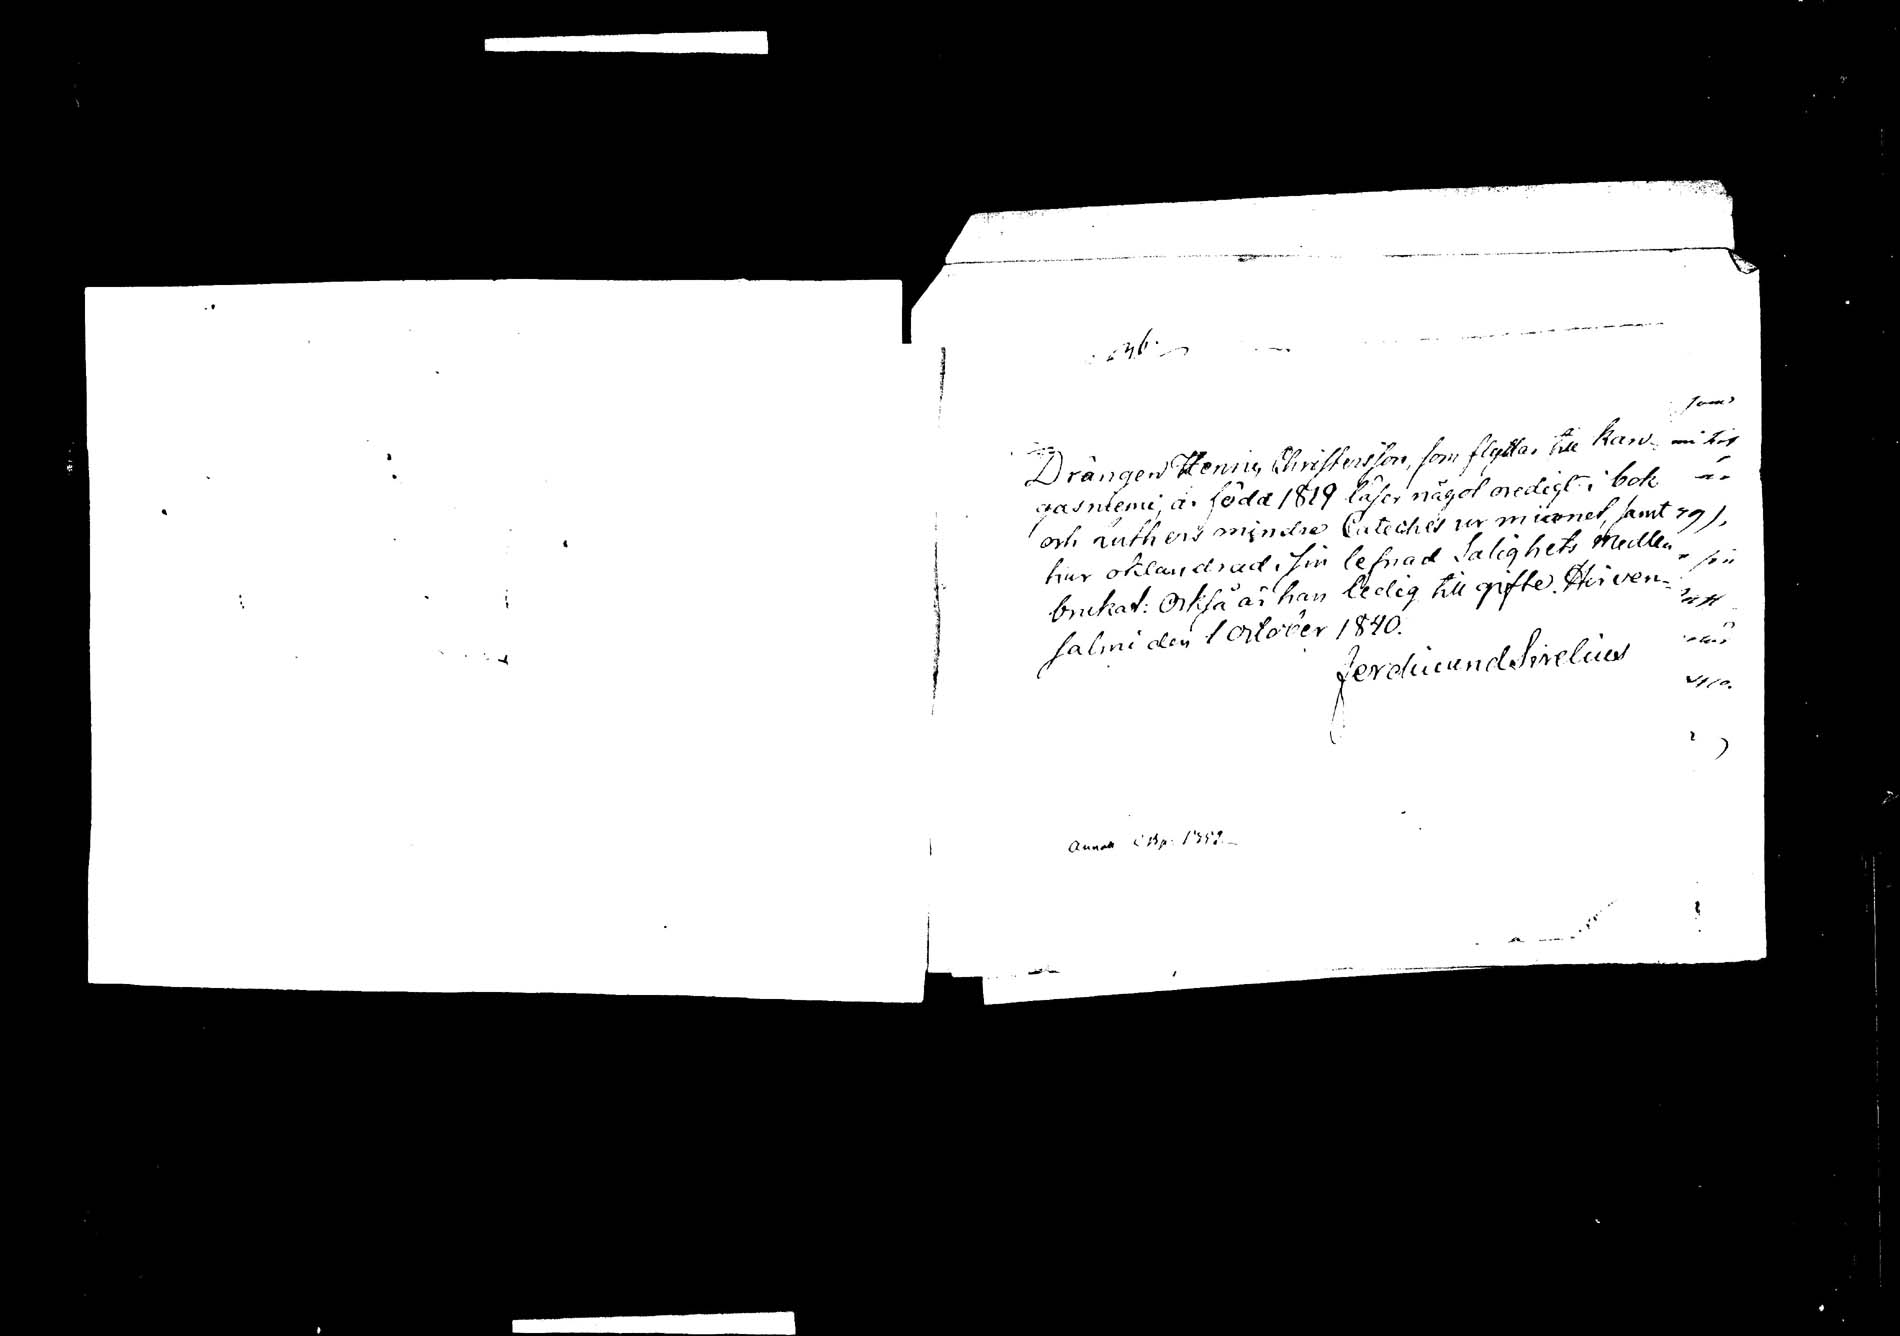 36.
Drängen Henric Christersson, som flyttar till Kan-
gasniemi, är född 1819 läser något oredigt i bok
och Luthers mindre Cateches ur minnet, samt
har oklandrad i sin lefnad Salighets Medlen
brukat: Också är han ledig till gifte. Hirven-
salmi den 1 October 1840.
Ferdinand Sirelius